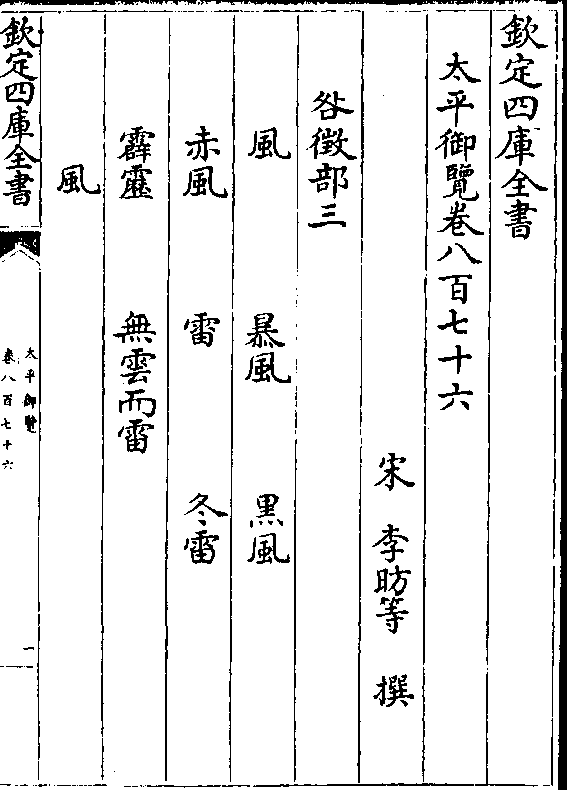 欽定四庫全書
太平御覽卷八百七十六
宋 李昉等 撰
咎徴部三
風 暴風 黒風
赤風 雷 冬雷
霹靂 無雲而雷
風
欽定四庫全書
太平御覽
卷八百七十六
一